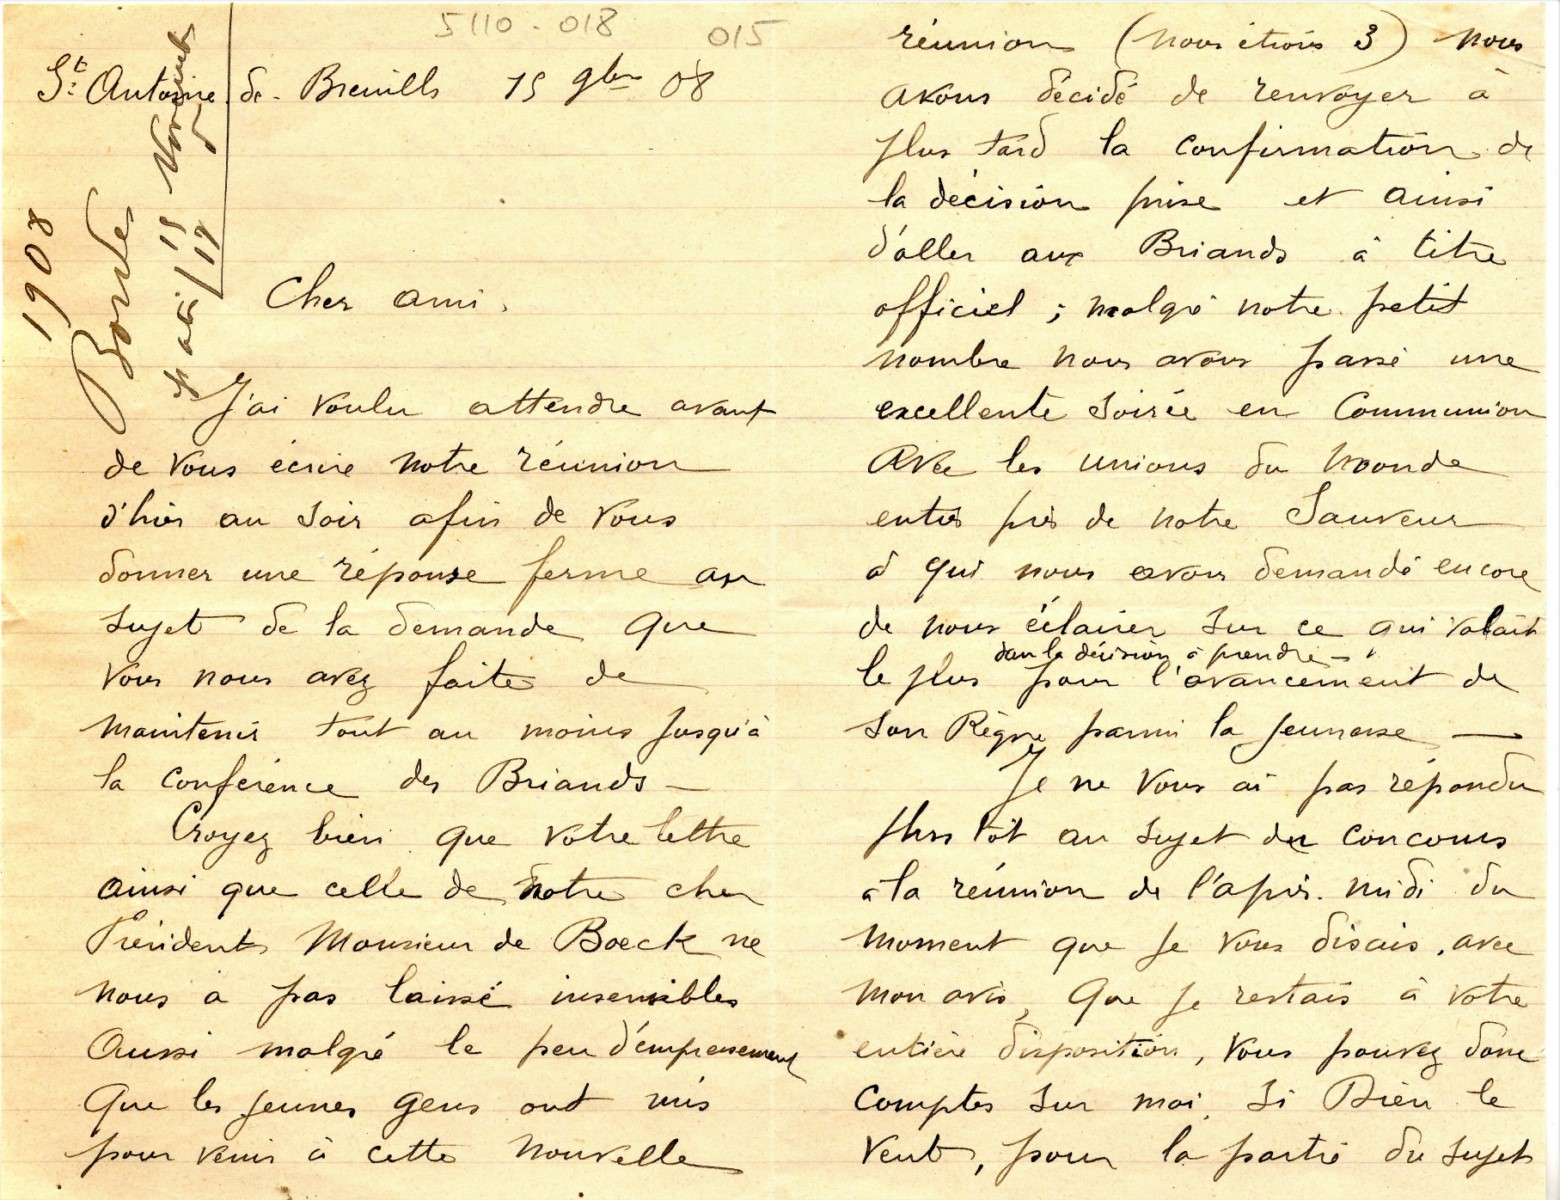 5110 - 018 015
St Antoine de Breuilh 15 9bre 08
1908
Cher ami,
J'ai voulu attendre avant
de vous écrire notre réunion
d'hier au soir afin de vous
donner une réponse ferme au
sujet de la demande que
vous nous avez faite de
maintenir tout au moins jusqu'à
la conférence des Briands —
Croyez bien que votre lettre
ainsi que celle de notre cher
Président Monsieur de Boeck ne
nous a pas laissé insensibles
Aussi malgré le peu d'empressement
que les jeunes gens ont mis
pour venir à cette nouvelle
réunion (nous étions 3) nous
avons décidé de renvoyer à
plus tard la confirmation de
la décision prise et ainsi
d'aller aux Briands à titre
officiel ; malgré notre petit
nombre nous avons passé une
excellente soirée en Communion
avec les unions du monde
entier près de notre Sauveur
à qui nous avons demandé encore
de nous éclairer sur ce qui valait
dans la décision à prendre —
le plus pour l'avancement de
son Règne parmi la jeunesse —
Je ne vous ai pas répondu
plus tôt au sujet du concours
à la réunion de l'après-midi du
moment que je vous disais, avec
mon avis, que je restais à votre
entière disposition, vous pouvez donc
compter sur moi, si Dieu le
veut, pour la partie du sujet